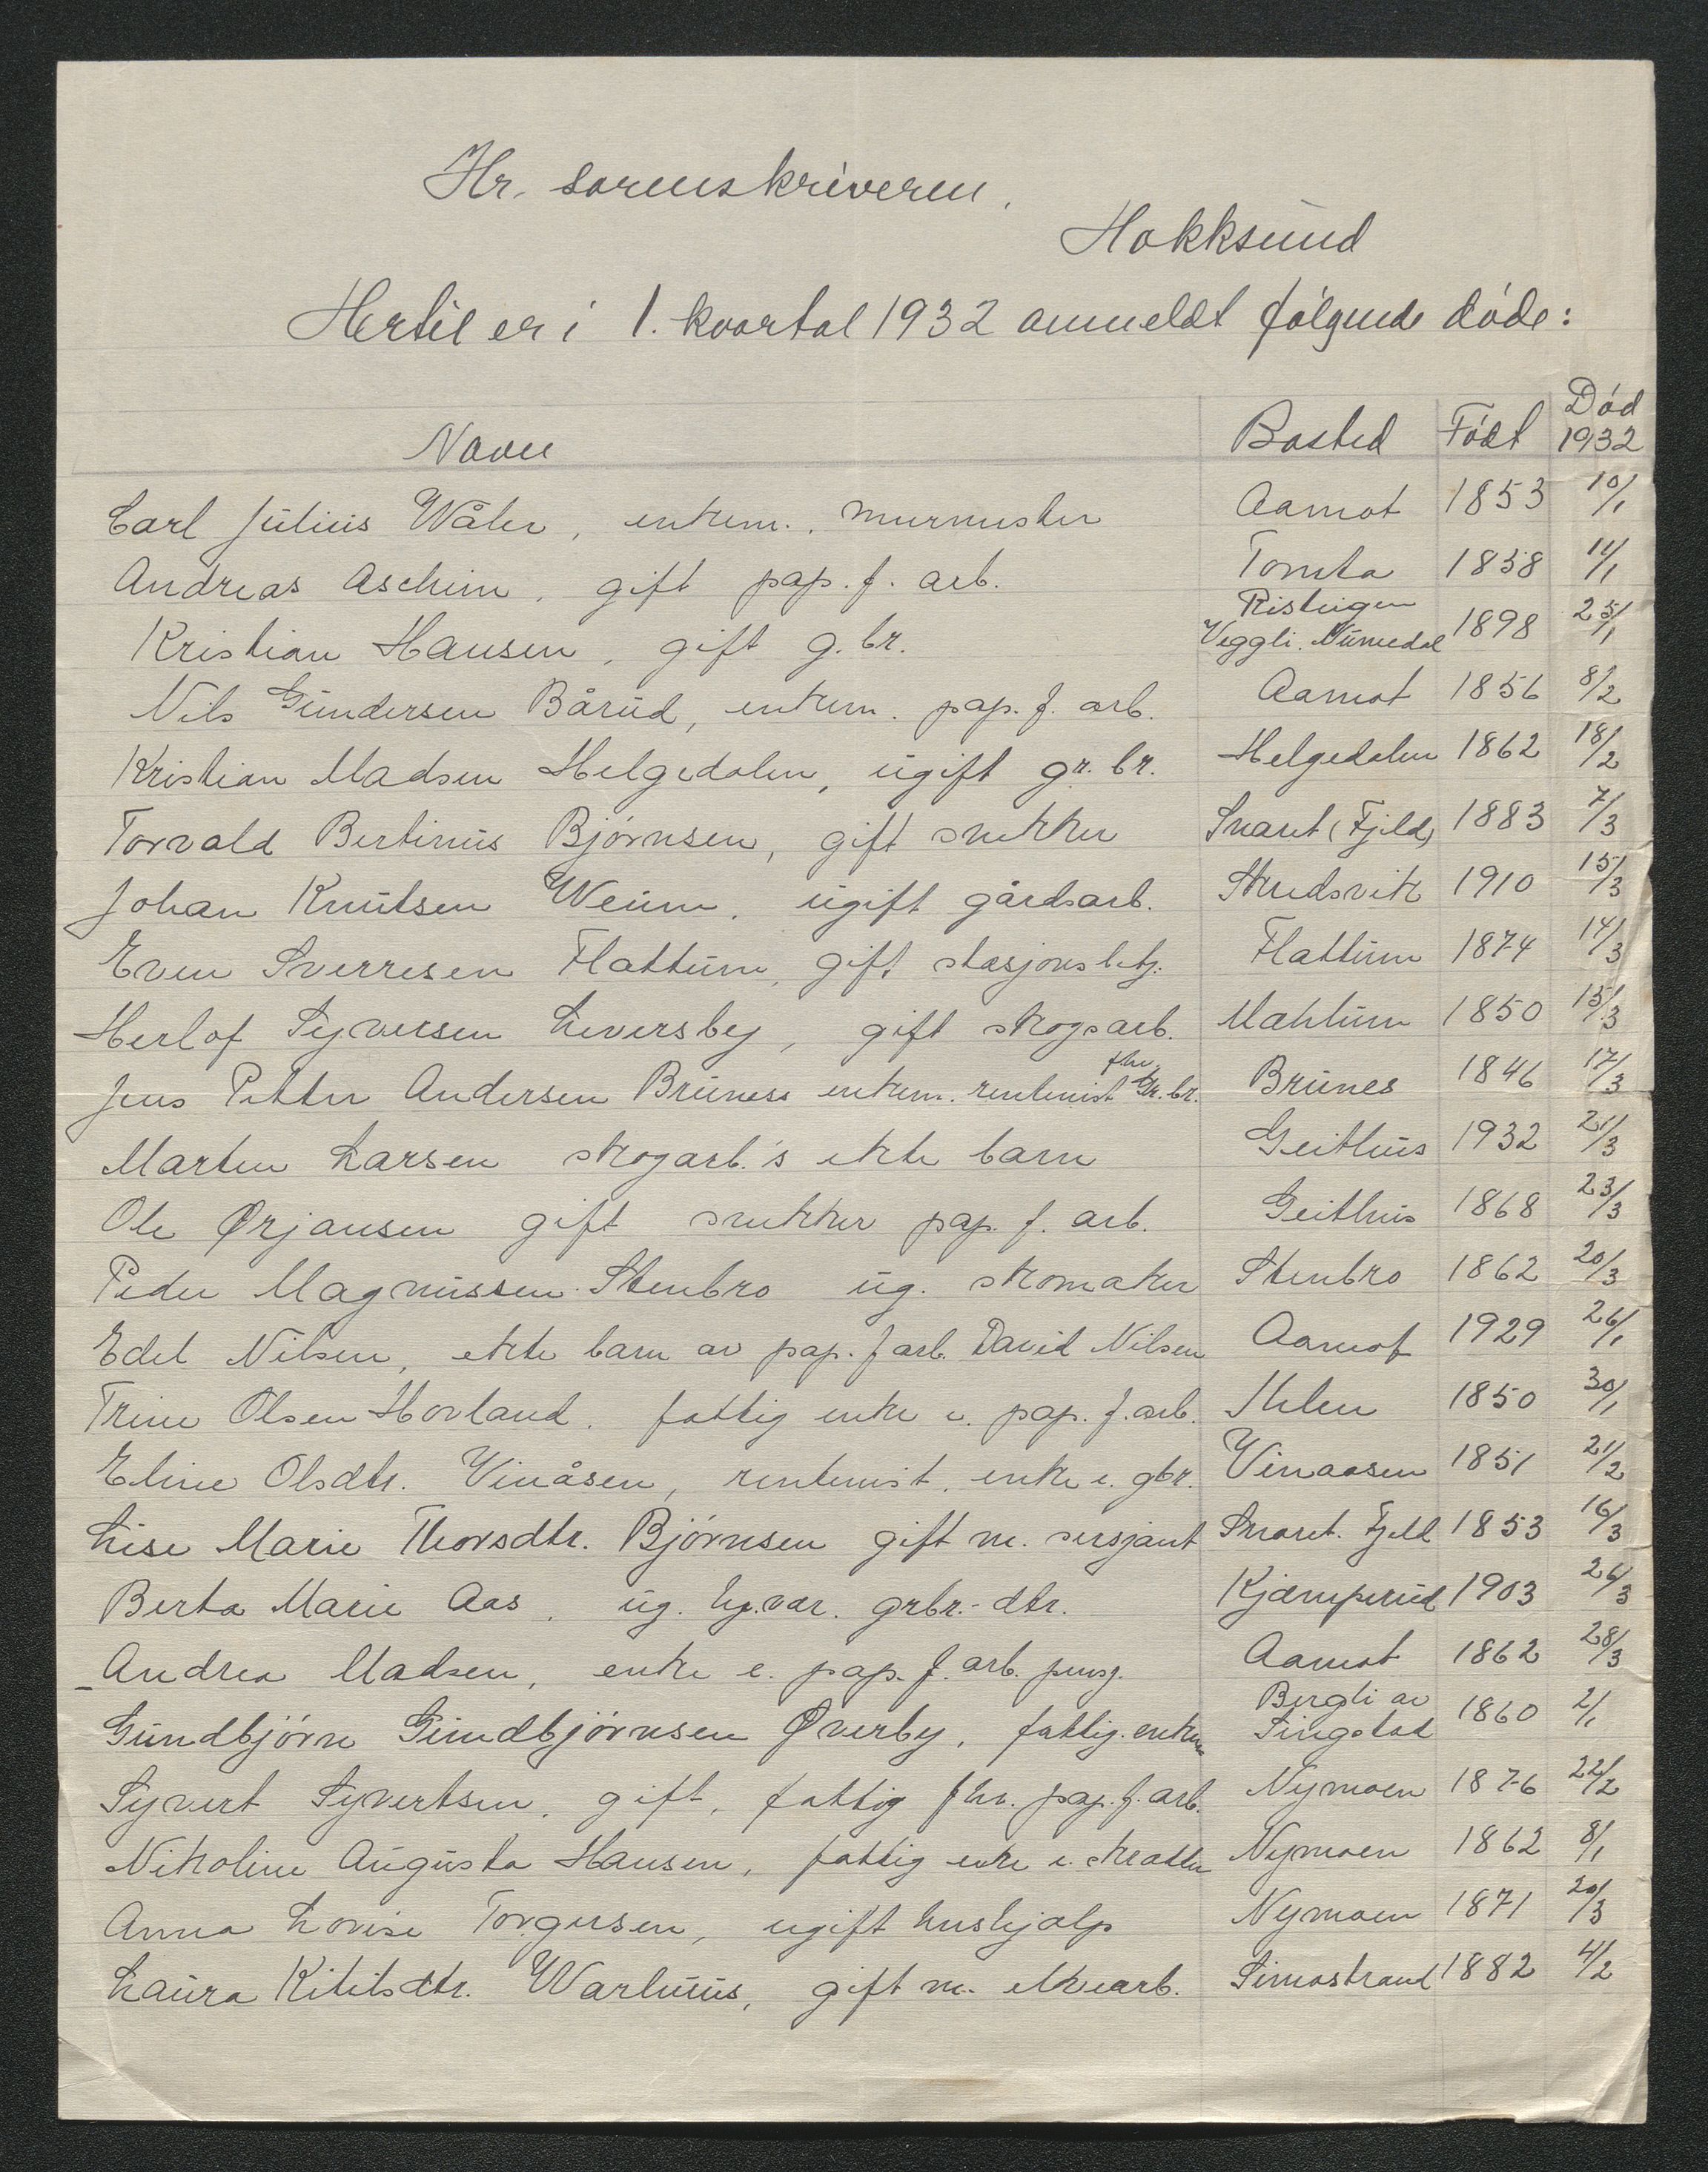 Hr. sorenskriveren,
Hokksund
Hertil er i 1. kvartal 1932 anmeldt følgende døde:
Navn Bosted Født Død 1932
Carl Julius Wåler, enkem. murmester Aamot 1853 10/1
Andreas Aschim, gift pap. f. arb. Tomta 1838 11/1
Kristian Hansen, gift g. br. Risteigen Veggli. Numedal 1898 25/1
Nils Gundersen Bårud, enkem. pap. f. arb. Aamot 1856 8/2
Kristian Madsen Helgedalen, ugift gr. br. Helgedalen 1862 18/2
Torvald Bertinius Bjørnsen, gift snekker Snaret (Fjeld) 1883 7/3
Johan Knutsen Weum, ugift gårdsarb. Stredsvik 1910 15/3
Even Sverresen Flattum, gift stasjonsbetj. Flattum 1874 14/3
Herlof Syversen Leversby, gift skogsarb. Mahlum 1850 15/3
Jens Petter Andersen Brunes enkem. rentenist fhv. Gr. br. Brunes 1846 17/3
Marten Larsen skogarb.'s ekte barn Geithus 1932 21/3
Ole Ørjansen gift snekker pap. f. arb. Geithus 1868 23/3
Peder Magnussen Stenbro ug. skomaker Stenbro 1862 20/3
Edel Nilsen, ekte barn av pap. f arb. David Nilsen Aamot 1929 26/1
Trine Olsen Hovland. fattig enke e. pap. f. arb. Ihlen 1850 30/1
Eline Olsdtr. Vinåsen, rentenist, enke e. gbr. Vinaasen 1851 21/2
Lise Marie Thorsdtr. Bjørnsen gift m. sersjant Snaret. Fjeld 1853 16/3
Berta Marie Aas, ug. hj.vær. grbr.-dtr. Kjæmperud 1903 26/3
Andrea Madsen, enke e. pap. f. arb. pensj. Aamot 1862 28/3
Gundbjørn Gundbjørnsen Øverby, fattig. enkem Bergli av Singstad 1860 2/1
Syvert Syvertsen, gift, fattig fhv. pap. f. arb. Nymoen 1876 22/2
Nikoline Augusta Hansen, fattig enke e. skredder Nymoen 1862 8/1
Anna Lovise Torgersen, ugift hushjælp Nymoen 1871 20/3
Laura Kitilsdtr. Warlunus, gift m. elvearb. Simostrand 1882 4/2